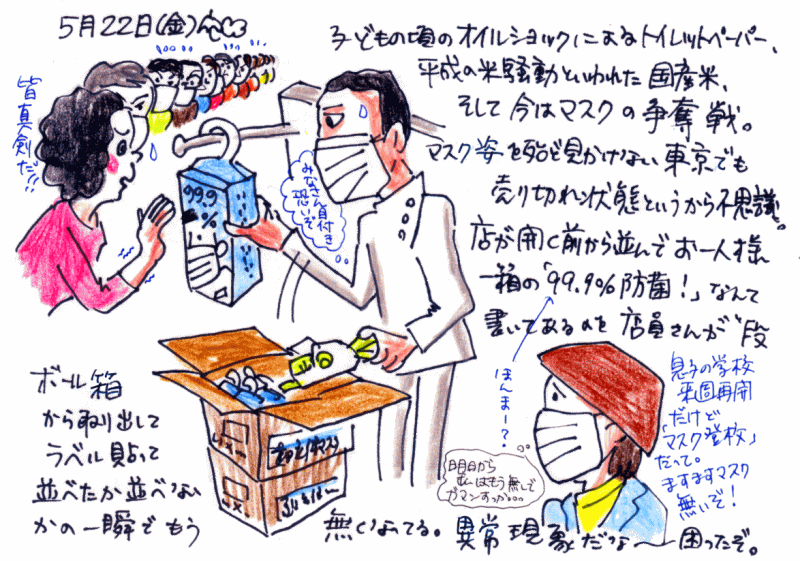 5月22日(金)
子どもの頃のオイルショックによるトイレットペーパー、
平成の米騒動といわれた国産米、
そして今はマスクの争奪戦。
マスク姿を殆ど見かけない東京でも
売り切れ状態というから不思議。
店が開く前から並んでお一人様
一箱の「99.9%防菌!」なんて
書いてあるのを店員さんが段
ボール箱
から取り出して
ラベル貼って
並べたか並べない
かの一瞬でもう
無くなってる。異常現象だな〜困ったぞ。
皆真
剣だ!!
99.9
%
みなさん顔付き
恐いぞ
ほんまー?
明日から
私はもう無しで
ガマンすっか…
息子の学校
来週再開
だけど
「マスク登校」
だって。
ますますマスク
無いぞ!